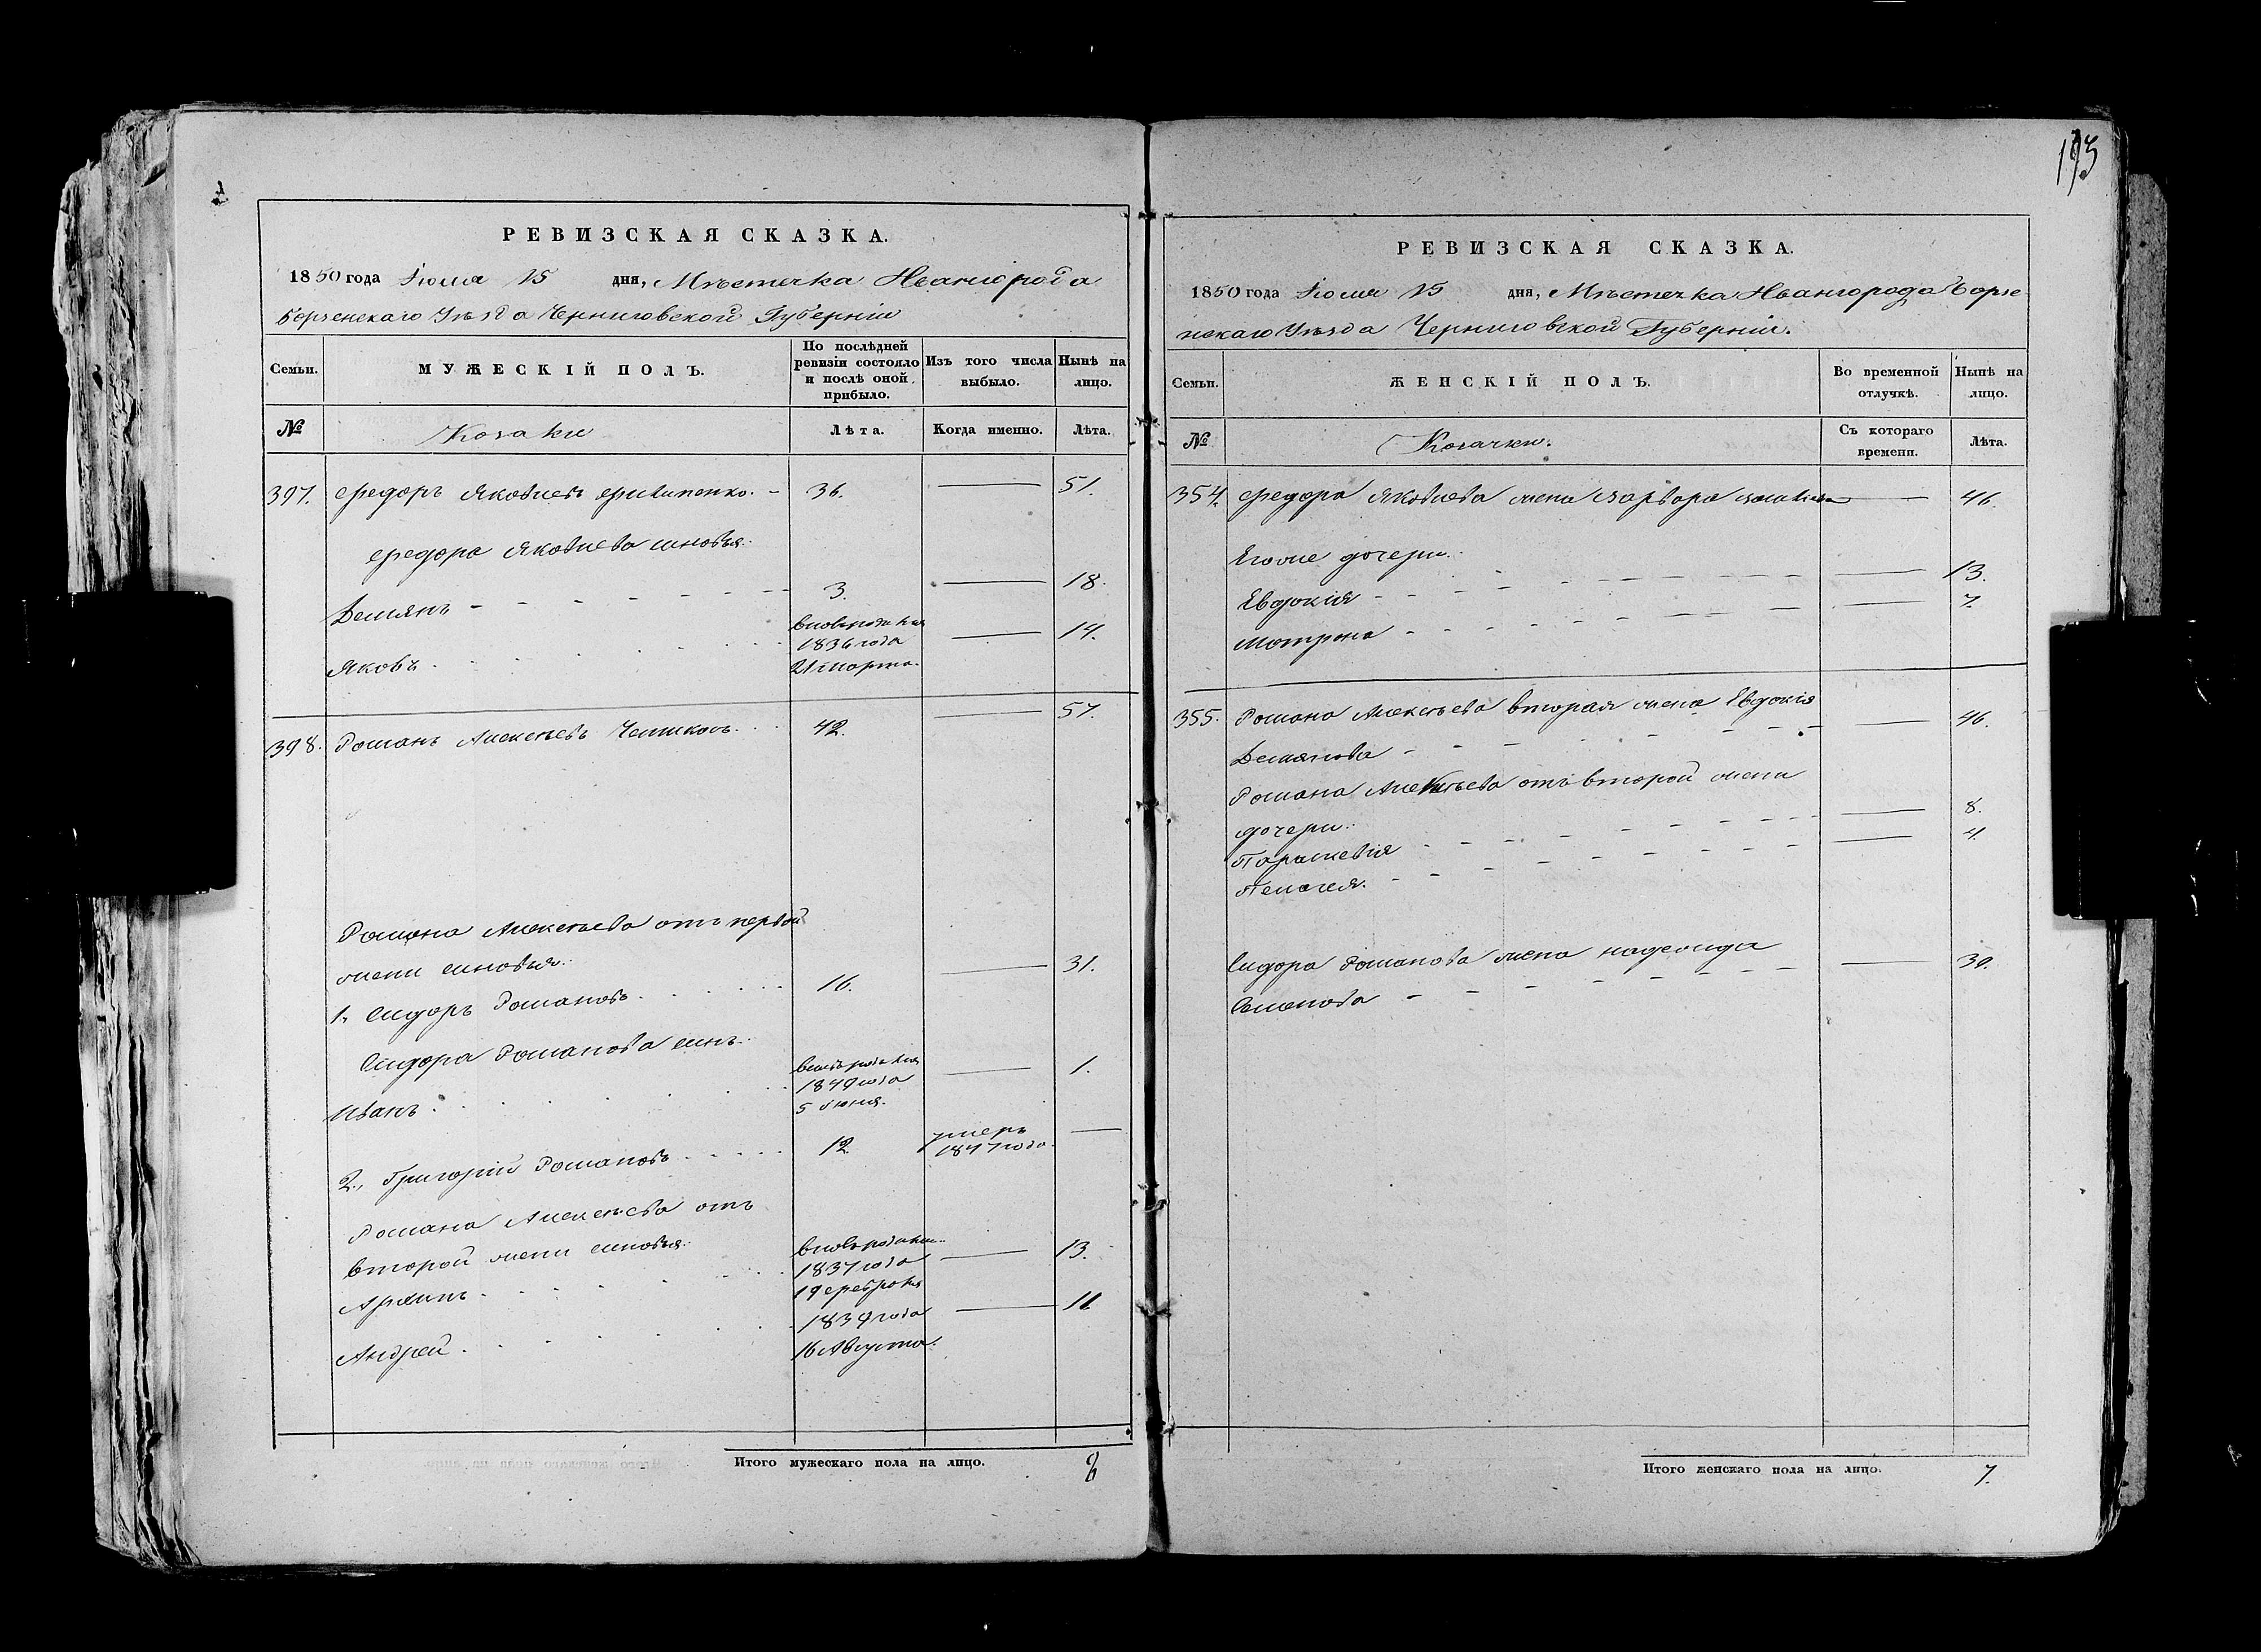 193
РЕВИЗСКАЯ СКАЗКА.
1850 года Іюля 15 дня, Мѣстечка Ивангорода
Борзенскаго Уѣзда Черниговской Губерніи
Семьи.
МУЖЕСКІЙ ПОЛЪ.
По послѣдней ревизіи состояло и послѣ оной прибыло.
Изъ того числа выбыло.
Нынѣ на лицо.
№
Козаки
Лѣта.
Когда именно.
Лѣта.
397. Федоръ Яковлевъ Филипенко. 36. 51.
Федора Яковлева сыновья:
Демянъ 3. 18.
Яковъ вновьрожден 1836 года 21 Марта. 14.
398. Романъ Алексѣевъ 42. 57.
Романа Алексѣева отъ первой
жены сыновья:
1, Сидоръ Романовъ 16. 31.
Сидора Романова сынъ:
Иванъ 1849 года 5 Июня. 1.
2., Григорій Романовъ 12. умеръ 1847 года
Романа Алексѣева отъ
второй жены сыновья:
Архипъ вновьрожден. 1837 года 19 Февраля 13.
Андрей 1839 года 16 Августа. 11
Итого мужескаго пола на лицо. 8
РЕВИЗСКАЯ СКАЗКА.
1850 года Іюля 15 дня, Мѣстечка Ивангорода Борзе
нскаго Уѣзда Черниговской Губерніи.
Семьи.
ЖЕНСКІЙ ПОЛЪ.
Во временной отлучкѣ.
Нынѣ на лицо.
№
Козачки.
Съ котораго времени.
Лѣта.
354. Федора Яковлева жена Варвара 46.
Егоже дочери:
Евдокія 13.
Мотрона 7.
355. Романа Алексѣева вторая жена Евдокія
Демянова 46.
Романа Алексѣева отъ второй жены
дочери:
Параскевія 8.
Пелагея. 4.
Сидора Романова жена Надежда
Семенова 30.
Итого женскаго пола на лицо. 7.